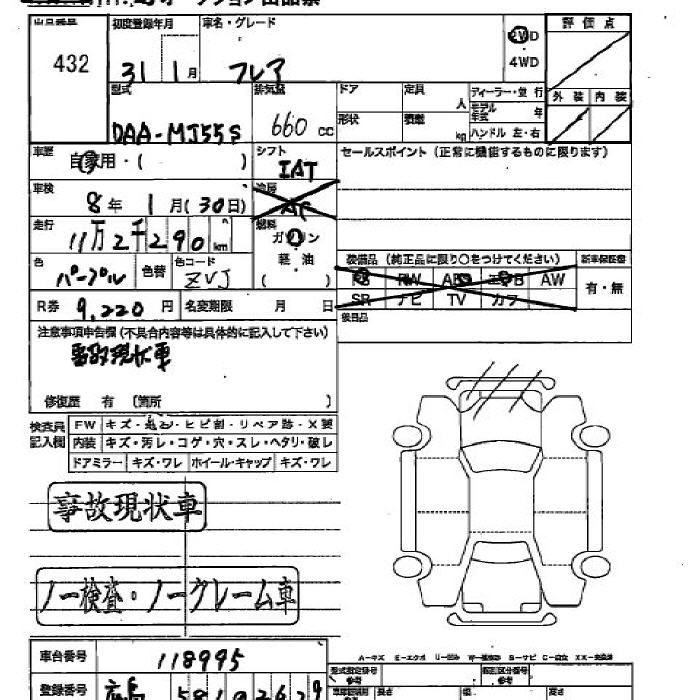 出品番号 初度登録年月 車名・グレード 2WD 評価点
432 31 1月 フレア 4WD
型式 排気量 ドア 定員 人 ディーラー・並行 外装 内装
DAA-MJ55S 660 cc 形状 積載 kg モデル年式 年
ハンドル 左・右
車歴 自家用・( ) シフト IAT セールスポイント (正常に機能するものに限ります)
車検 8年 1月(30日) 冷房 AC
走行 11万2千290km 燃料 ガソリン
軽油
色 パープル 色替 色コード ZVJ ( )
装備品 (純正品に限り〇をつけてください) 新車保証書
PS PW ABS エアB AW 有・無
SR ナビ TV カワ
R券 9,220円 名変期限 月 日
欠品
注意事項申告欄(不具合内容等は具体的に記入して下さい)
事故現状車
修復歴 有 (箇所 )
検査員記入欄 FW キズ・ ・ヒビ割・リペア跡・X要
内装 キズ・汚レ・コゲ・穴・スレ・ヘタリ・破レ
ドアミラー キズ・ワレ ホイール・キャップ キズ・ワレ
事故現状車
ノー検査・ノークレーム車
A-キズ E-エクボ U-凹ミ
車台番号 118995
登録番号
型式指定番号 参考
類別区分番号 参考
長さ 幅 高さ